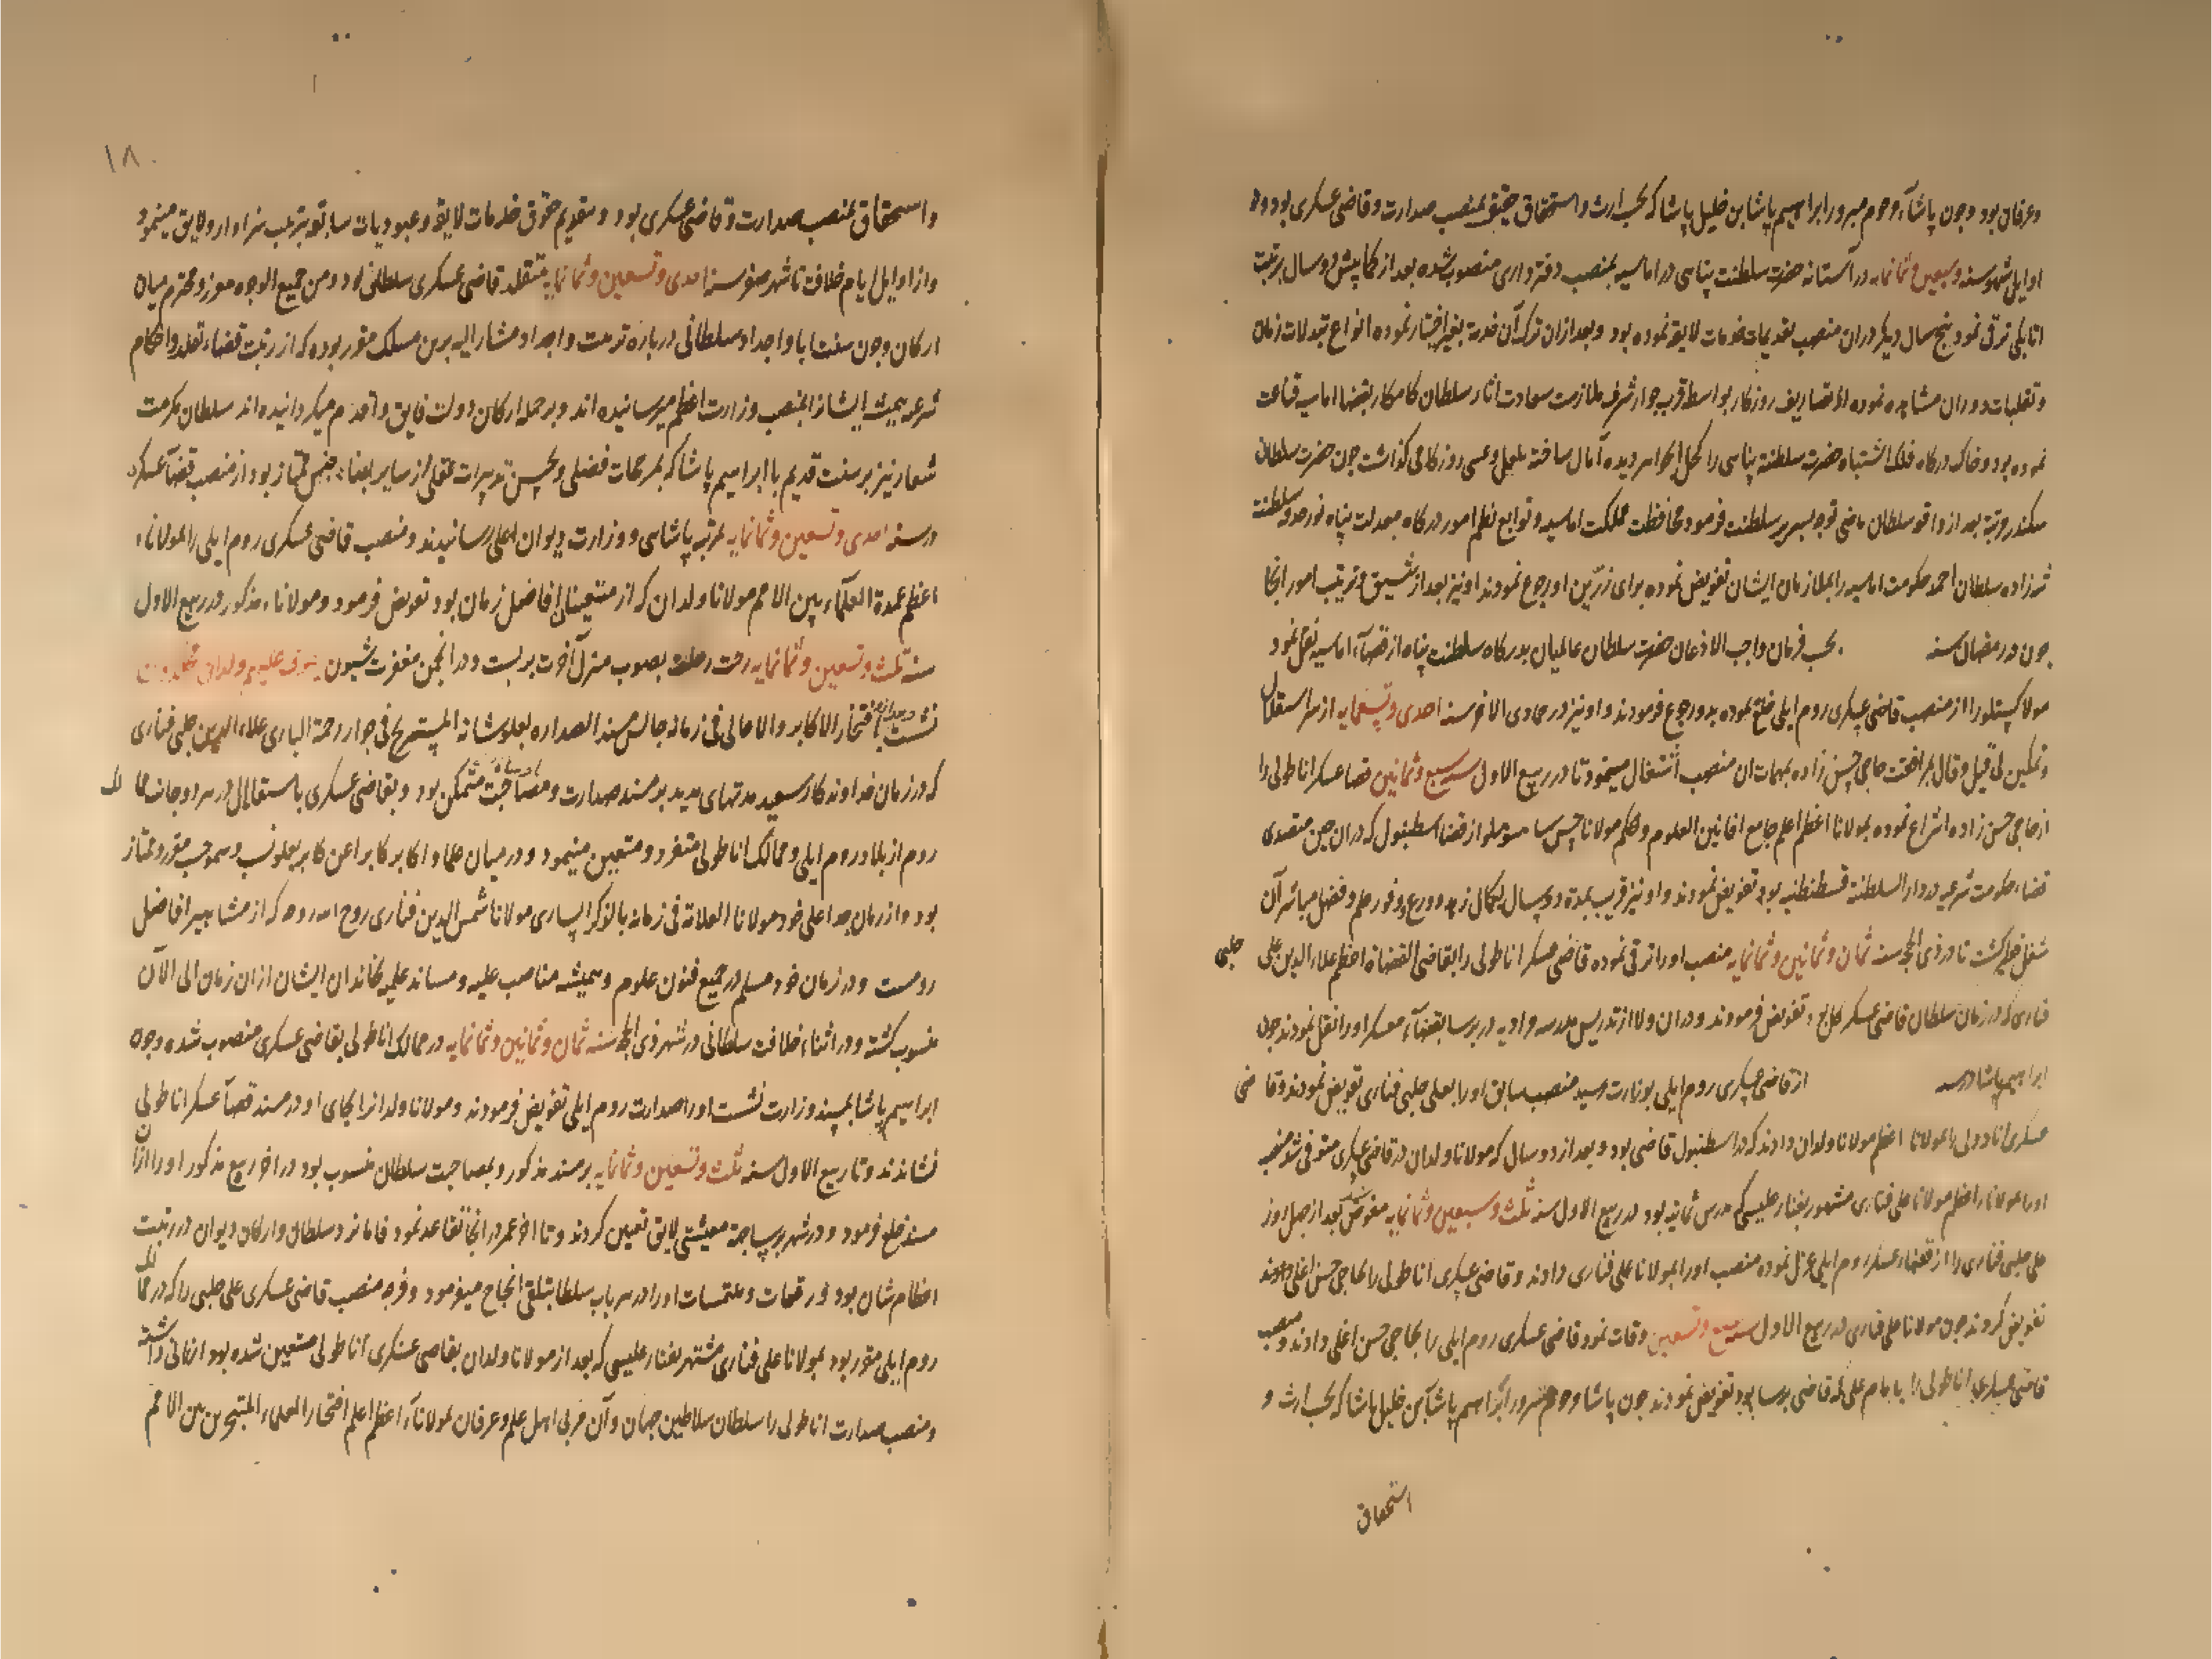 وعرفان بود و چون پاشاء مرحوم مبرور ابراهیم پاشا بن خلیل پاشا که بحسب ارث و استحقاق حقیق بمنصب صدارت و قاضی عسکری بود و در
اوایل شهور سنه وسبعین وثمانمایه در آستانه حضرت سلطنت پناهی در اماسیه بمنصب دفترداری منصوب شده بعد از دو سال برتبت
اتابکی ترقی نمود پنج سال دیگر در ان منصب بتقدیمات خدمات لایقه نموده بود و بعد ازان ترک آن خدمت اختیار نموده انواع تبدلات زمان
و تقلبات دوران مشاهده نموده تصاریف روزکار بواسطه قرب جوار شرف ملازمت سعادت اثار سلطان کامکار بقضا اماسیه قناعت
نموده بود و خاک درکاه فلک اشتباه حضرت سلطنت پناهی را کحل الجواهر دیده آمال ساخته روزکار می کذاشت چون حضرت سلطان
سکندر مرتبت بعد از واقعه سلطان ماضی توجه بسریر سلطنت فرمود محافظت مملکت اماسیه و توابع نظم امور درکاه معدلت پناه سلطنت
شهزاده سلطان احمد حکومت اماسیه را بملازمان ایشان تفویض نموده برای زرین او رجوع نمودند او نیز بعد از تنسیق و ترتیب امور انجا
چون در رمضان سنه بحسب فرمان واجب الاذعان حضرت سلطان عالمیان بدرکاه سلطنت پناه از قضاء اماسیه نقل نمود
مولا کستلو را از منصب قاضی عسکری روم ایلی خلع نموده بدو رجوع فرمودند و او نیز در جمادی الاخر سنه احدی وتسعمایه از سر استقلال
و تمکین بی قیل و قال حاجی حسن زاده بمهمات ان منصب اشتغال مینمود تا در ربیع الاول سنه سبع وثمانین قضا عسکر اناطولی را
از حاجی حسن زاده انتزاع نموده بمولانا اعظم اعلم جامع افانین العلوم و الحکم مولانا از قضا اسطنبول که دران حین متصدی
قضاء حکومت شرعیه دار السلطنة قسطنطنیه بود تفویض نمودند و او نیز قریب بمدت دو سال بکمال زهد و ورع و وفور علم و فضل مباشر آن
شغل خطیر کشت تا در ذی الحجه سنه ثمان وثمانین وثمانمایه منصب او را ترقی نموده قاضی عسکر اناطولی را بقاضی القضاة اعظم علاء الدین علی چلبی
فناری که در زمان سلطان قاضی عسکر تفویض فرمودند و دران ولا از تدریس مدرسه مرادیه در بروسا بقضاء معسکر او را نقل نمودند چون
ابراهیم پاشا در سنه از قاضی عسکری روم ایلی بوزارت رسید منصب سابق او را بعلی چلبی فناری تفویض نمودند و قاضی
عسکری انادولی را بمولانا اعظم مولانا ولدان دادند که در اسطنبول قاضی بود و بعد از دو سال که مولانا ولدان در قاضی عسکری متوفی شد منصب
او را بمولانا اعظم مولانا علی فناری مشهور بفنار علیسی که مدرس ثمانیه بود در ربیع الاول سنه ثلث وسبعین وثمانمایه مفوض شد بعد از چهل روز
علی چلبی فناری را از قضاء عسکر روم ایلی عزل نموده منصب او را بمولانا علی فناری دادند و قاضی عسکری اناطولی را بحاجی حسن اغلی دادند
تفویض کردند چون مولانا علی فناری در ربیع الاول سنه سبع وتسعین وفات نمود قاضی عسکری روم ایلی را بحاجی حسن اغلی دادند و منصب
قاضی عسکری اناطولی را بامام علی که قاضی بروسا بود تفویض نمودند چون پاشا مرحوم مبرور ابراهیم پاشا بن خلیل پاشا که بحسب ارث و
استحقاق
١٨٠
و استحقاق بمنصب صدارت و قاضی عسکری بود و بتقدیم حقوق خدمات لایقه و عبودیات سابقه بترتیب سزاوار و لایق مینمود
و از اوایل ایام خلافت تا شهر صفر سنه احدی وتسعین وثمانمایه متقلد قاضی عسکری سلطانی بود و من جمیع الوجوه معزز و محترم میان
ارکان و چون سنت ابا و اجداد سلطانی درباره تربیت و اجداد مشار الیه برین مسلک مقرر بوده که از رتبت قضاء تقلد احکام
شرعیه ایشانرا بمنصب وزارت اعظم میرسانیده اند و بر جمله ارکان دولت فایق و اقدم میکردانیده اند سلطان مکرمت
شعار نیز بر سنت قدیم با ابراهیم پاشا که بمرجحات فضلی و بحسن تدبیرات عقلی از سایر ابناء جنس ممتاز بود از منصب قضاء عسکر
در سنه احدی وتسعین وثمانمایه بمرتبه پاشاسی و وزارت دیوان اعلی رسانیدند و منصب قاضی عسکری روم ایلی را بمولاناء
اعظم عمدة العلماء بین الامم مولانا ولدان که از متعینان افاضل زمان بود تفویض فرمود و مولاناء مذکور در ربیع الاول
سنه ثلث وتسعین وثمانمایه رخت رحلت بصوب منزل آخرت بربست و در انجمن مغفرت
نشست و بعد ازو افتخار الاکابر و الاعالی فی زمانه جالس مسند الصداره بعلو شانه المستریح فی جوار رحمة الباری علاء الدین علی چلبی فناری
که در زمان خداوندکار سعید مدتهای مدید بر مسند صدارت و مصاحبت متمکن بود و بقاضی عسکری باستقلال در سراوجانب ممالک
روم از بلاد روم ایلی و ممالک اناطولی متفرد و متعین مینمود و در میان علما و اکابر کابرا عن کابر بعلو نسب و سمو حسب مقرر و ممتاز
بود و از زمان جد اعلی خود مولانا العلامة فی زمانه بالذکر الساری مولانا شمس الدین فناری روح الله روحه که از مشاهیر افاضل
رومست و در زمان خود مسلم در جمیع فنون علوم و همیشه مناصب علیه و مساند علمیه بخاندان ایشان ازان زمان الی الآن
منسوب کشته و در اثناء خلافت سلطانی در شهر ذی الحجه سنه ثمان وثمانین وثمانمایه در ممالک اناطولی بقاضی عسکری منصوب شده و چون
ابراهیم پاشا بمسند وزارت نشست او را صدارت روم ایلی تفویض فرمودند و مولانا ولدانرا بجای او در مسند قضاء عسکر اناطولی
نشاندند و تا ربیع الاول سنه ثلث وتسعین وثمانمایه بر مسند مذکور و بمصاحبت سلطان منسوب بود در اخر ربیع مذکور او را ازان
مسند خلع فرمود و در شهر بروسا جهة معیشتی لایق تعیین کردند و تا اخر عمر در انجا تقاعد نمود فاما نزد سلطان و ارکان دیوان در رتبت
اعظام شان بود و رقعات و ملتمسات او را در هر باب سلطان بتلقی انجاح میفرمود و منصب قاضی عسکری علی چلبی را که در ممالک
روم ایلی مقرر بود بمولانا علی فناری مشتهر بفنار علیسی که بعد از مولانا ولدان بقاضی عسکری اناطولی متعین شده بود ارزانی داشته
و منصب صدارت اناطولی را سلطان سلاطین جهان و آن مربی اهل علم و عرفان بمولاناء اعظم اعلم افتخار العلماء المتبحرین بین الامم